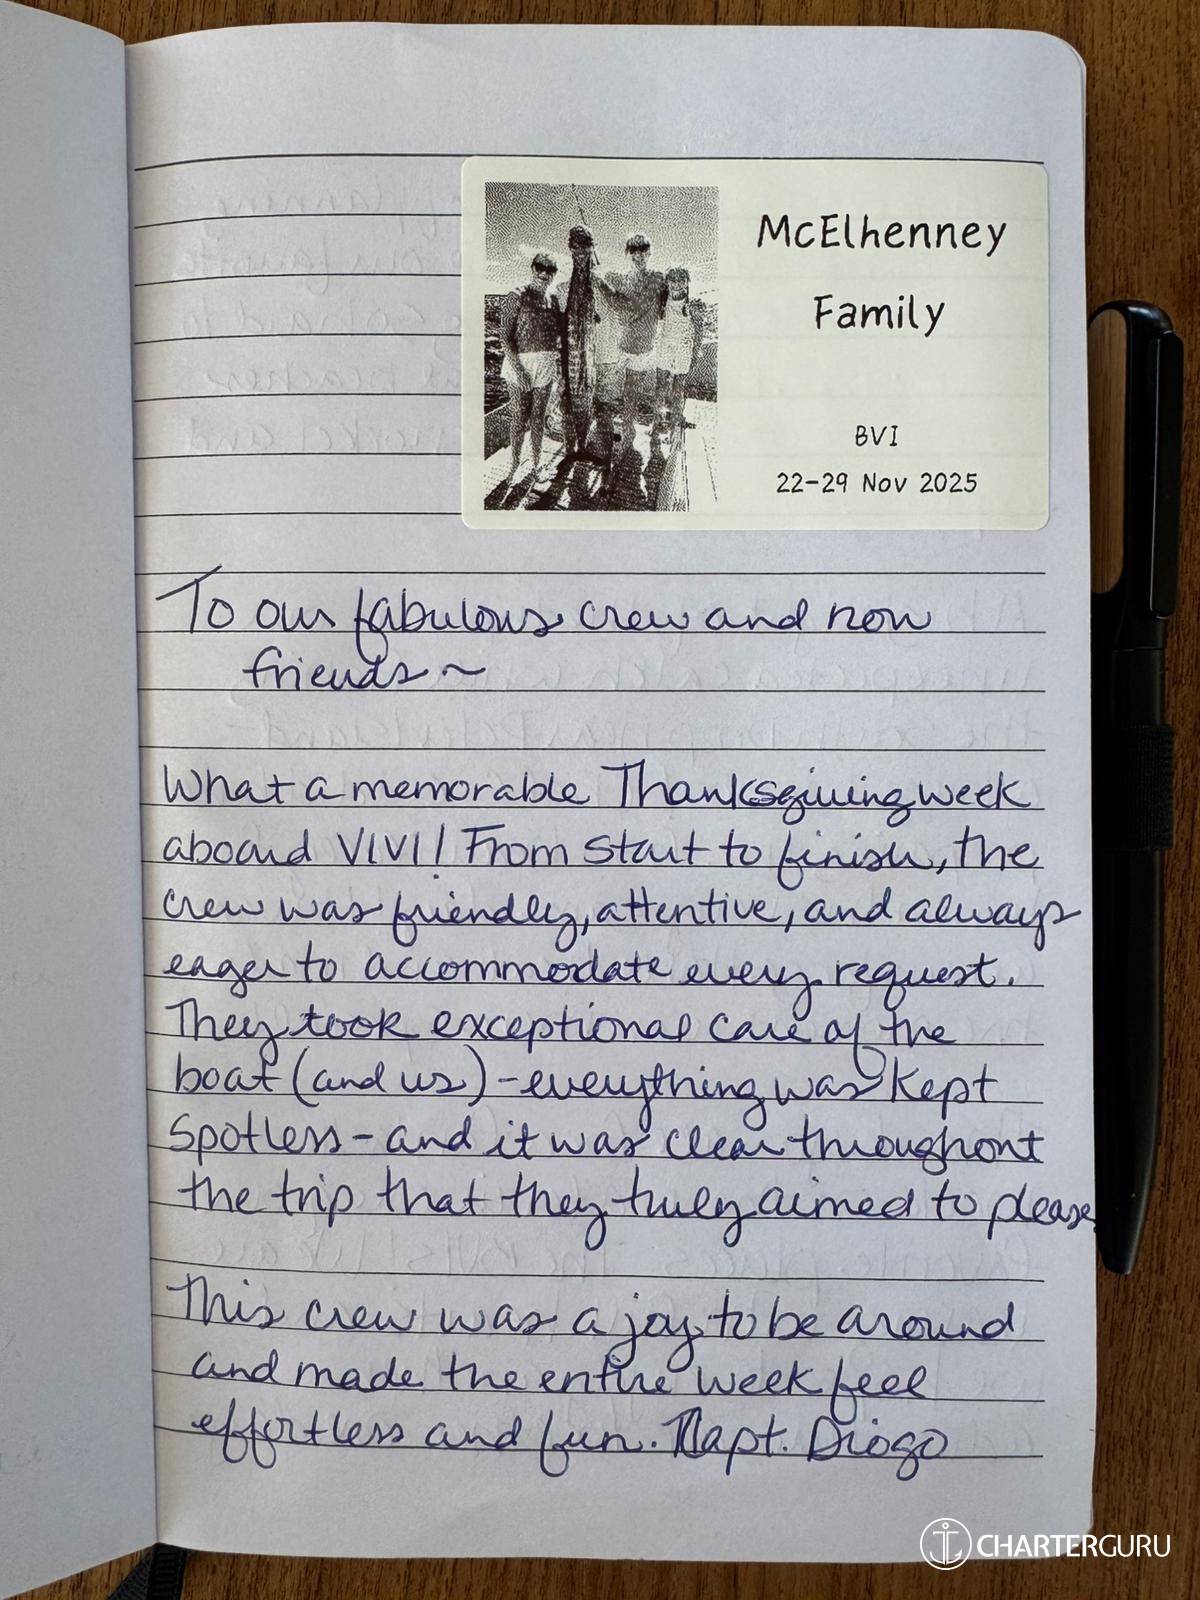 McElhenney
Family
BVI
22-29 Nov 2025
To our fabulous crew and now
friends ~
What a memorable Thanksgiving week
aboard VIVI! From start to finish, the
crew was friendly, attentive, and always
eager to accommodate every request.
They took exceptional care of the
boat (and us) - everything was kept
spotless - and it was clear throughout
the trip that they truly aimed to please
This crew was a joy to be around
and made the entire week feel
effortless and fun. Capt. Diogo
CHARTERGURU